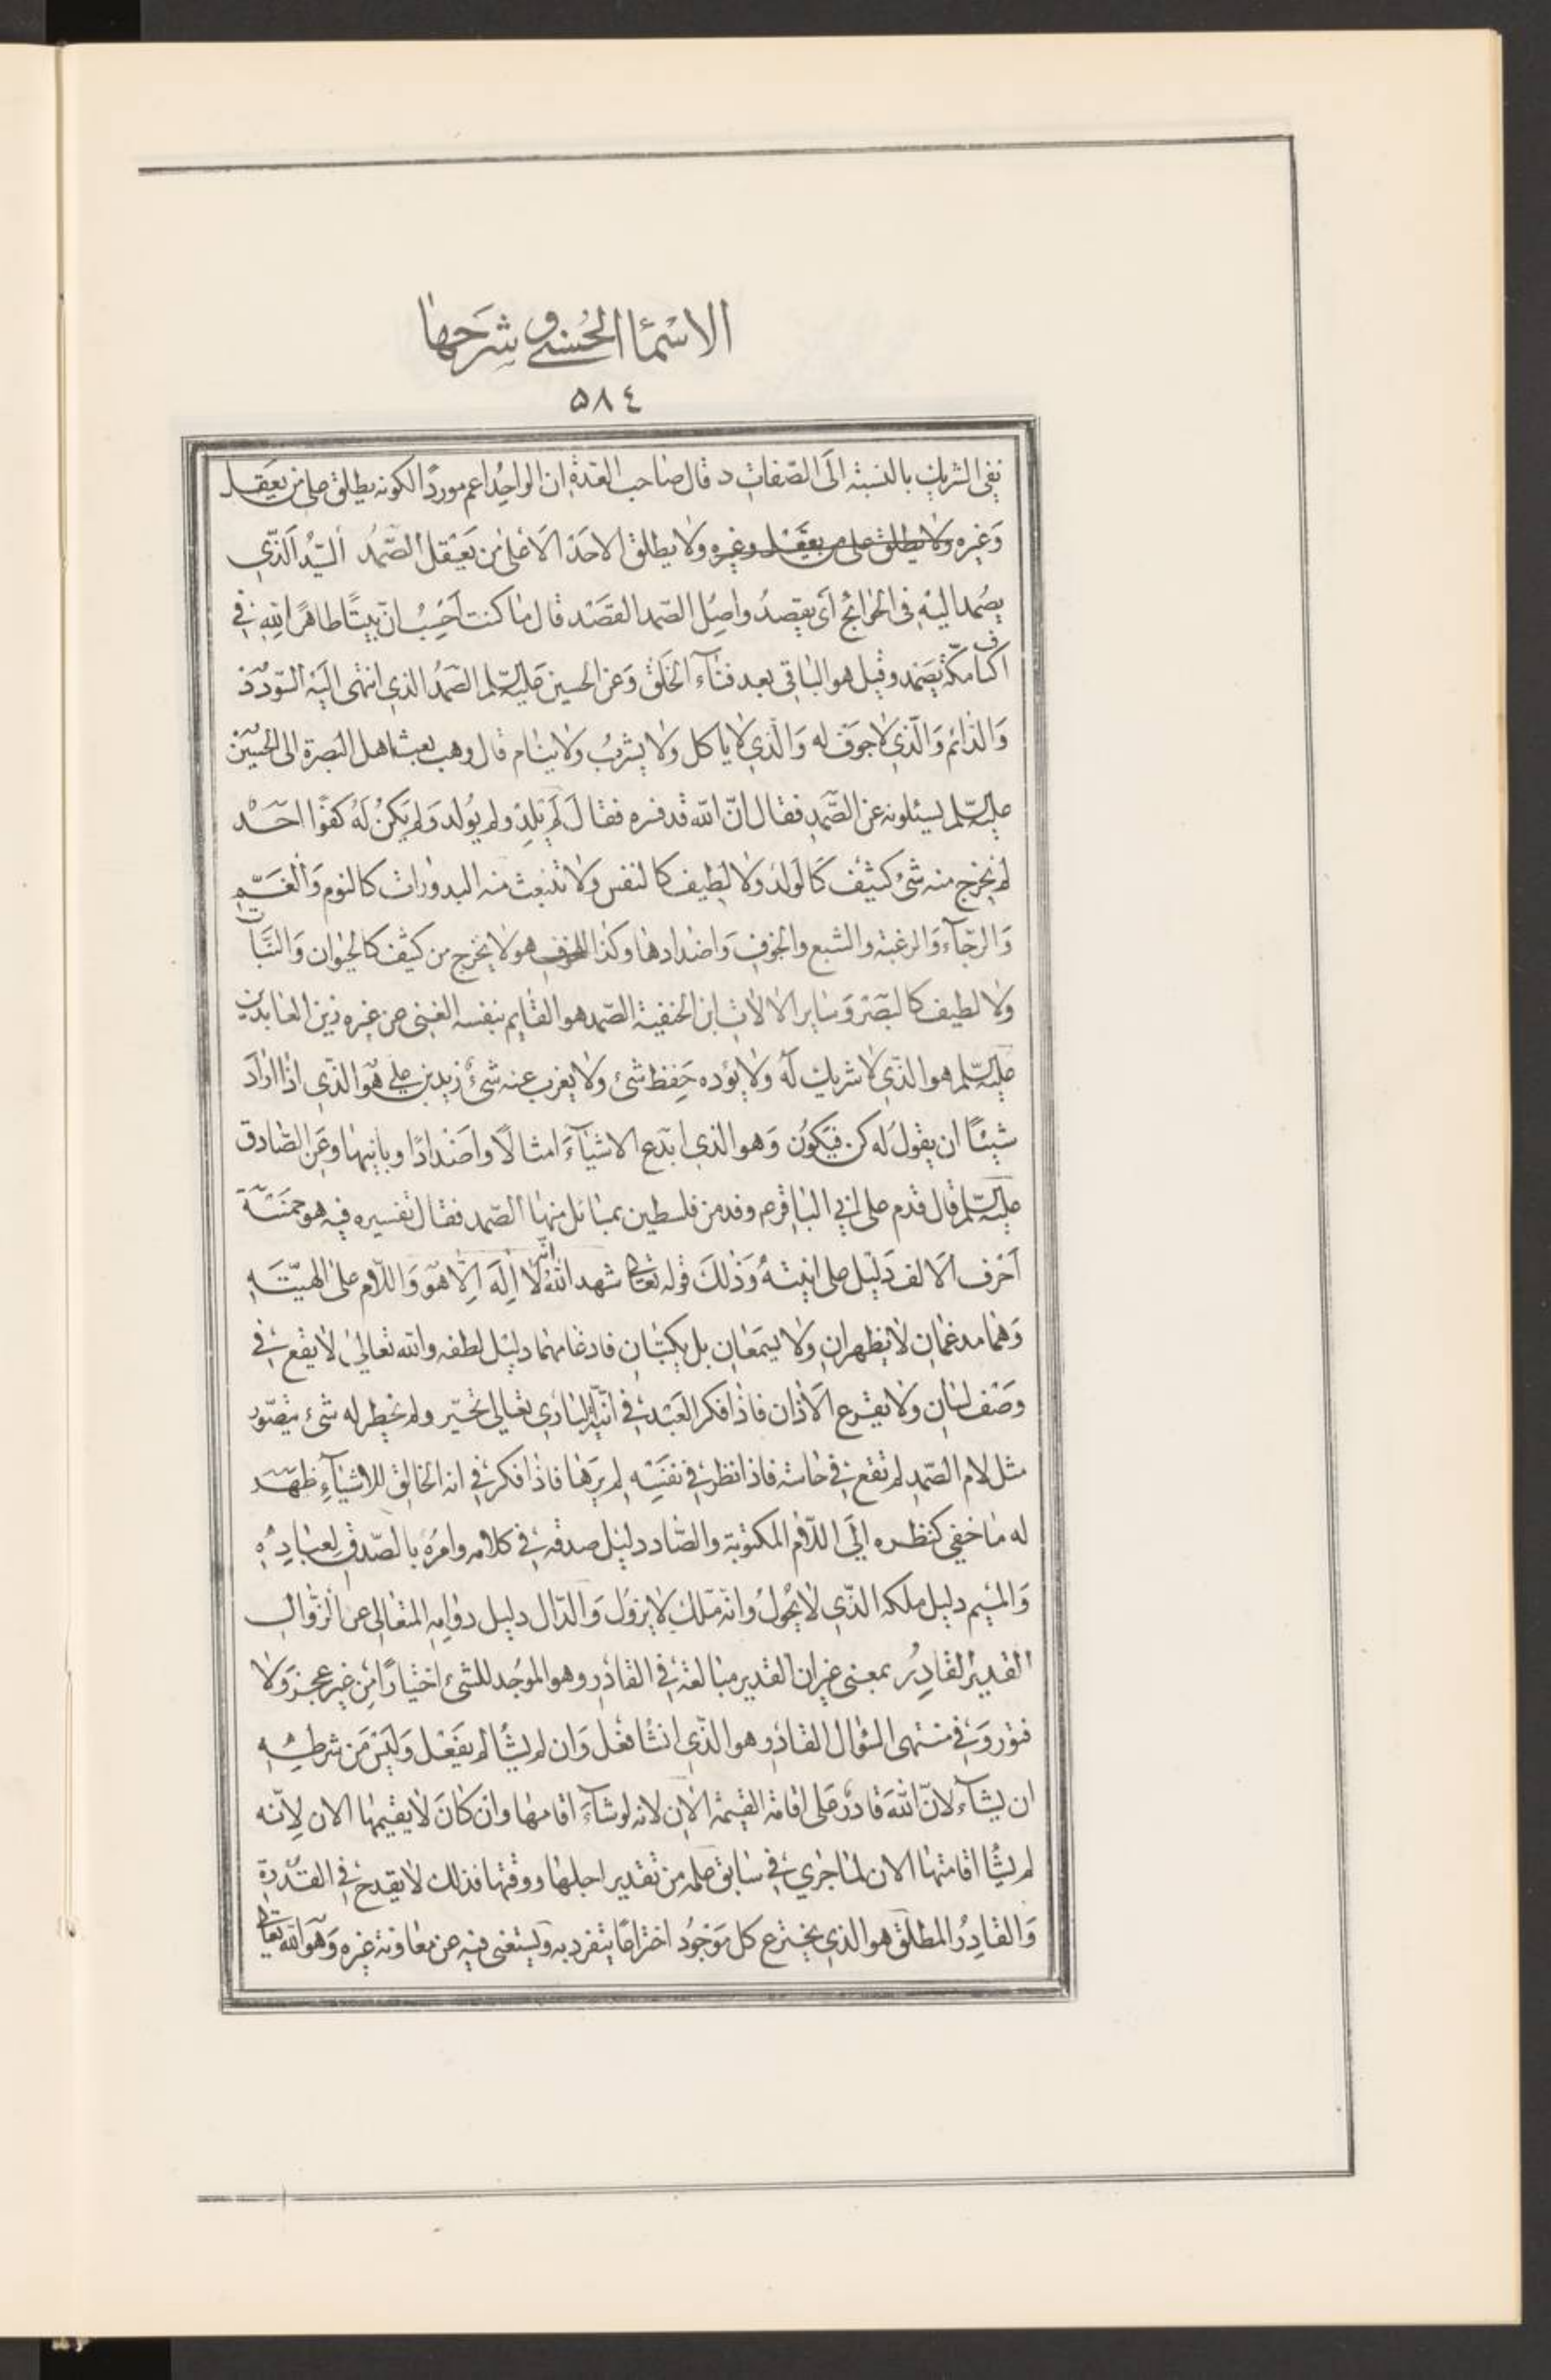 الاسْمٰاا الحُسنى و شرَحهٰا
۵۸٤
نفى الشريك بالنسبة الَى الصّفات د قال صٰاحب العدة ان الواحِدُ اعم موردًا لكونه يطلق على من يعَقل
وَغيره ولا يطلق على من يعقل وغيره ولا يطلق الاحَدْ الا على من يَعْقل الصّمدُ السّيّدُ الَذّي
يصُمد اليْه فى الحَوائج اَى يقصدُ واصِل الصّمد القصْد قال مٰا كنت اَحْسِبُ انّ بيتًا طاهرًا لِلّهِ فى
اكنٰاف مكّة يصَمد وقيل هو البٰاقى بعد فنٰآء الخَلق وَعن الحسين عَليه السّلم الصّمدُ الذي انتهى اليَه السّودُد
وَالدّائم وَالّذي لٰا جوَف له وَالّذي لٰا ياكل ولٰا يشربُ ولٰا ينٰام قال وهب بعث اهل البَصرة الى الحُسَين
عليه السّلم يسئلونه عن الصّمد فقال انّ اللّه قد فسره فقٰالَ لَم يَلِد ولم يُولد وَلم يَكنُ لَهُ كفوًا احَدْ
لم يخرج منه شىٔ كثيف كَالوَلد ولٰا لطيف كالنفس ولٰا تنبعث منه البدوٰرات كالنوم وَالغَمّ
وَالرجٰآء وَالرغبة والشبع والخوف وَاضدٰادهٰا وكذا هو لٰا يخرج من كثيف كالحيَوان وَالنّبٰات
ولٰا لطيف كالبَصَر وَسٰاير الالٰات ابن الحنفية الصّمد هو القٰايم بنفسه الغنى عن غيره زين العٰابدين
عليه السّلم هو الّذي لٰا شريك لَه ولٰا يؤده حِفظ شىٔ ولٰا يعزب عنه شىٔ زيد بن علي هوَ الذّي اذٰا ارٰادَ
شيئًا ان يقولَ له كن فيَكوُن وَهو الذي ابدع الاشيٰآءَ امثالًا واضدٰادًا وباينهٰا وعَن الصّادق
عليه السّلم قال قدم على ابي البٰاقر م وفد من فلسطين بمسٰائل منهٰا الصّمد فقال تفسيره فيه هو خمَسَة
اَحرف الَالف دَليْل على انيّتهُ وَذٰلكَ قوله تعٰالى شهد اللّهُ انّه لٰا اِلَه اِلّا هوَ وَاللّام على الهيّتَه
وَهمٰا مدغمٰان لٰا يظهران ولٰا يسمَعٰان بل يكتبٰان فادغٰامهمٰا دليل لطفه واللّه تعالى لٰا يقع في
وَصْف لسٰان ولٰا يقرع الَاذٰان فاذٰا فكر العَبْد في انيّة البٰارى تعٰالى تحيّر ولم يخطر له شىٔ يتصّور
مثل لام الصّمد لم تقع في حٰاسّة فاذا نظر في نفسِه لم يَرَهٰا فاذٰا فكر في انه الخٰالِق للاشيٰآءِ ظهَر
له مٰا خفى كنظره اِلَى اللّام المكتوبة والصّاد دليل صدقه في كلامه وامرُه بالصّدق لِعبٰادِهِ
وَالميْم دليل ملكه الذّي لٰا يحُولُ وانّه مَلك لٰا يزوُل وَالدّال دليل دوٰامِه المتعٰالى عن الزّوالِ
القديرُ القٰادِرُ بمعنى غير ان القدير مبالغة في القٰادر وهو الموُجد للشىٔ اختيٰارًا مِن غير عجز وَلا
فتور وَفي منتهى السّؤال القٰادر هو الّذي ان شٰا فعل وَان لم يشٰا لم يفعْل وَليَسَ من شرطِهِ
ان يشٰآء لانّ اللّهَ قٰادرٌ عَلى اقٰامة القيٰمة الٰان لانه لو شٰآءَ اقٰامهٰا وان كٰانَ لٰا يقيمهٰا الان لِانّه
لم يشٰا اقٰامتهٰا الان لمٰا جرى في سٰابق علمه من تقدير اجلهٰا ووقتهٰا فذلك لٰا يقدح في القدْرة
وَالقٰادِرُ المطلق هو الذي يخترع كل مَوْجُود اختراعًا يتفرد به وَيستغنى فيه عن معٰاونة غيره وَهو اللّه تعٰالى